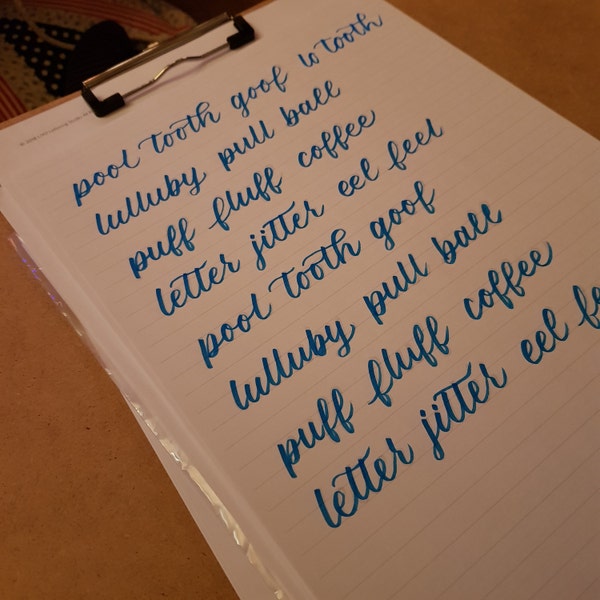 pool tooth goof to tooth
lulluby pull ball
puff fluff coffee
letter jitter eel feel
pool tooth goof
lulluby pull ball
puff fluff coffee
letter jitter eel